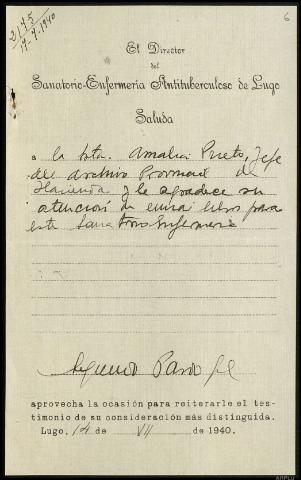 6
2175
17-7-1940
El Director
del
Sanatorio-Enfermería Antituberculoso de Lugo
Saluda
a la Srta. Amalia Prieto, Jefe
del Archivo Provincial de
Hacienda y le agradece su
atención de enviar libros para
este Sanatorio Enfermería
Segundo Pardo Gil
aprovecha la ocasión para reiterarle el tes-
timonio de su consideración más distinguida.
Lugo, 14 de VII de 1940.
AHPLU